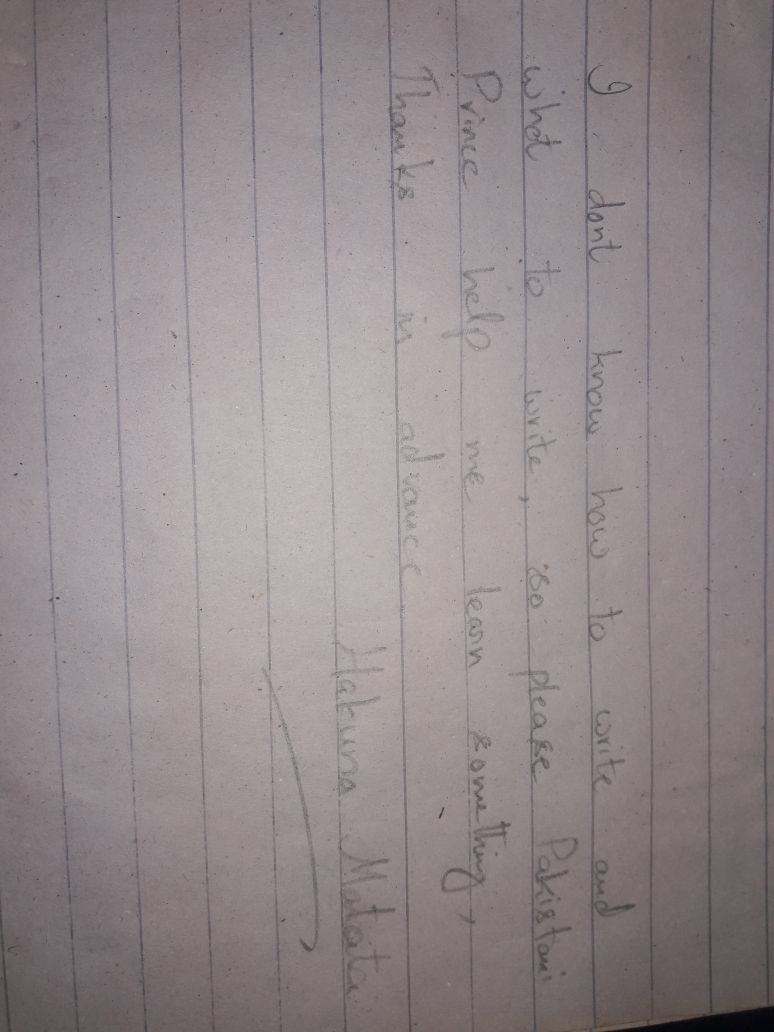 I dont know how to write and
what to write, so please Pakistani
Prince help me learn something,
Thanks in advance.
Hakuna Matata